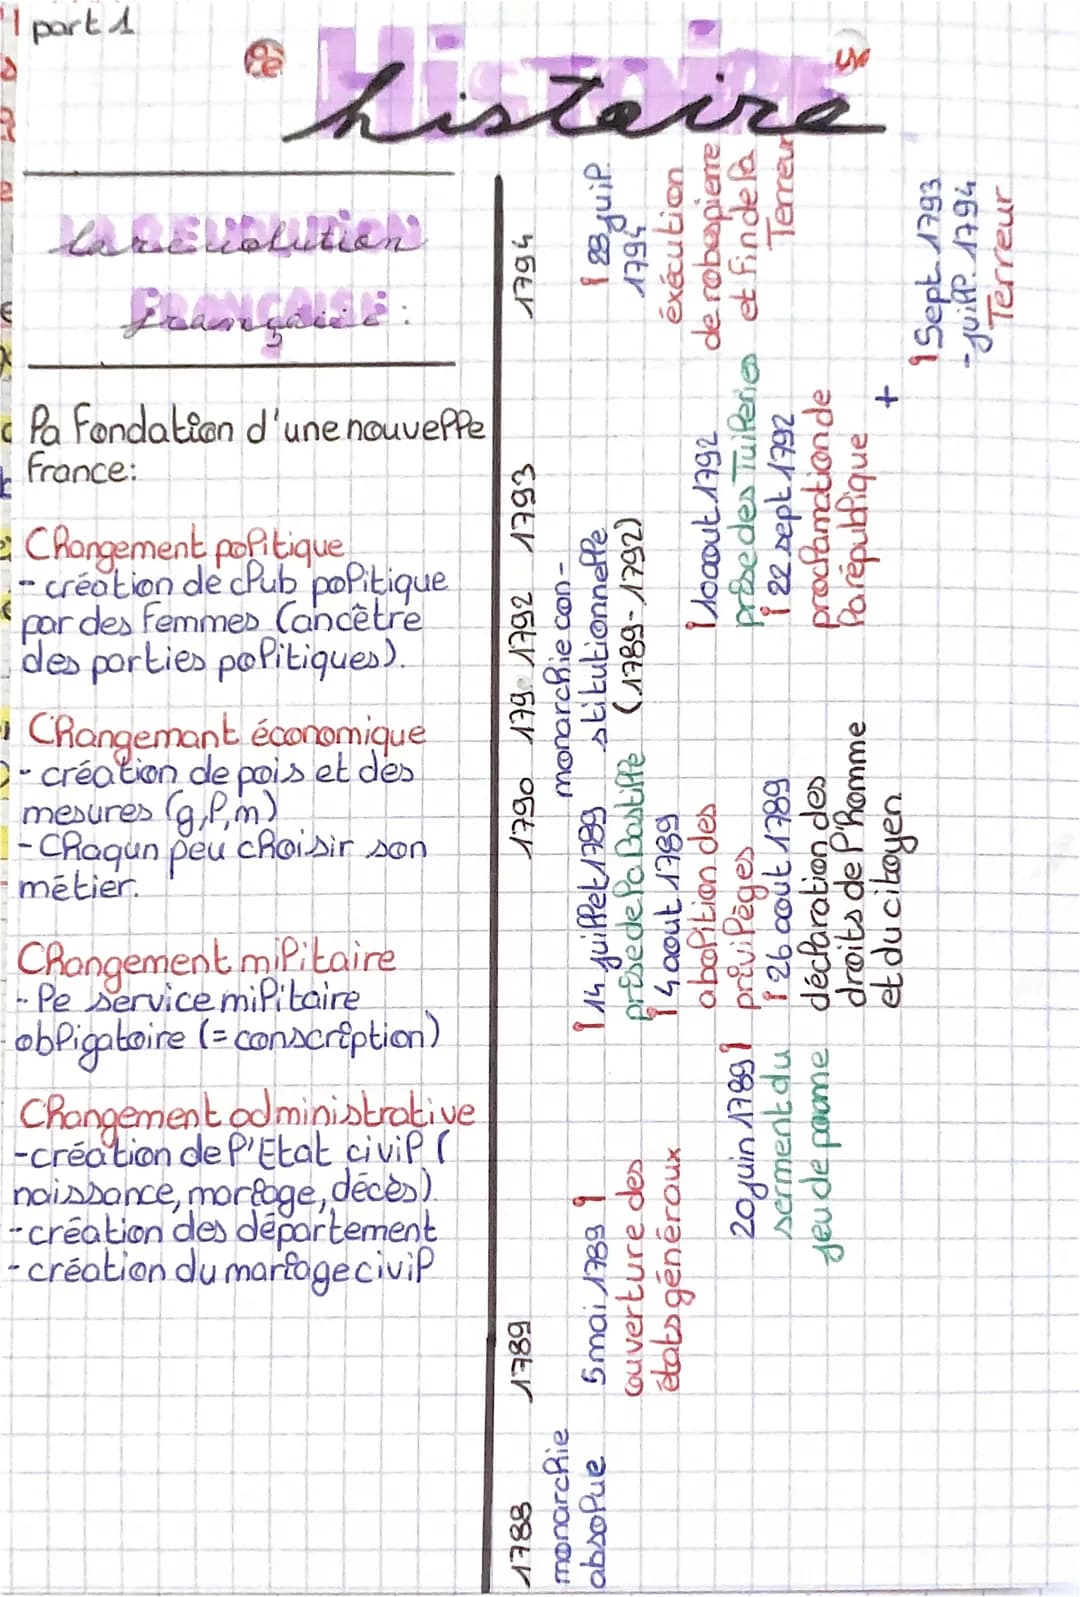 part 1
HISTOIRE
histoire
la révolution
Française :
la fondation d'une nouvelle
france:
Changement politique
- création de club politique
par des femmes (ancètre
des parties politiques).
Changemant économique
- création de pois et des
mesures (g,l,m)
- Chaqun peu choisir son
métier.
Changement militaire
- le service militaire
obligatoire (= conscription)
Changement administrative
- création de l'Etat civil (
naissance, mariage, décès).
- création des département
- création du mariage civil
1788
1789
1790
179
1792
1793
1794
monarchie
absolue
5 mai 1789
ouverture des
états généraux
20 juin 1789
serment du
jeu de paume
14 juillet 1789
prise de la Bastille
4 aout 1789
abolition des
privilèges
26 aout 1789
déclaration des
droits de l'homme
et du citoyen
monarchie con-
stitutionnelle
(1789-1792)
10 aout 1792
prise des Tuileries
22 sept 1792
proclamation de
la république
+
28 juil.
1794
éxécution
de robespierre
et fin de la
Terreur
Sept. 1793
- juill. 1794
Terreur